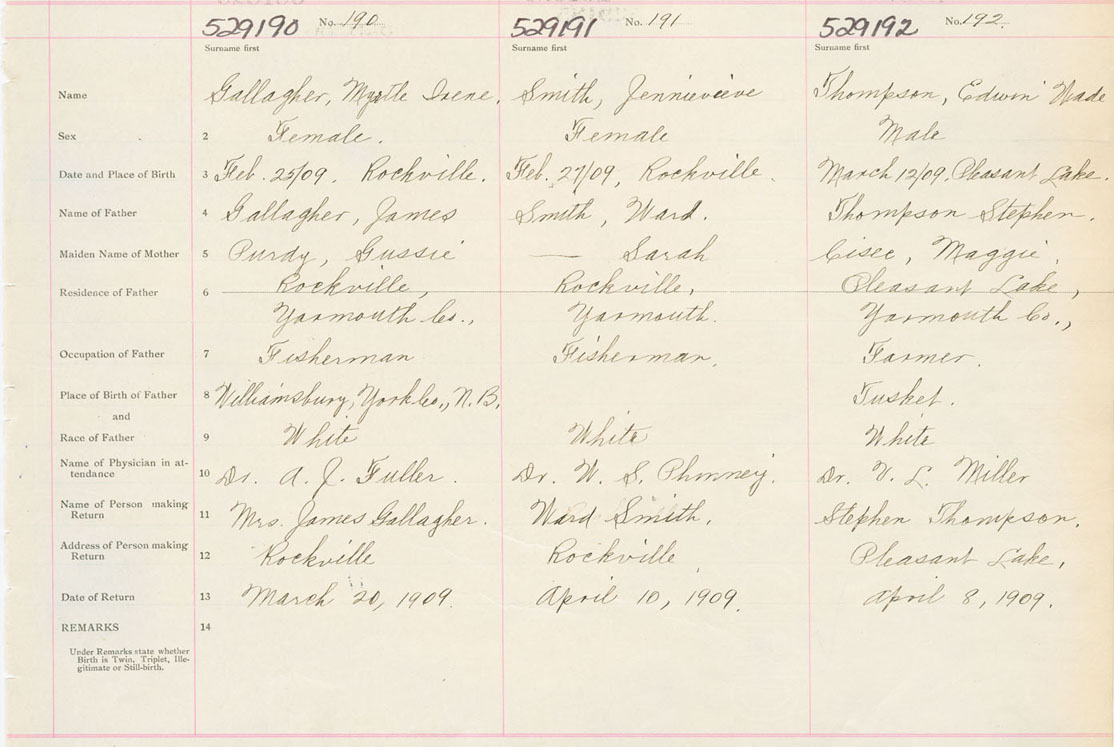 529190 No. 190. 529191 No. 191 529192 No. 192.
Surname first Surname first Surname first
Name Gallagher, Myrtle Irene. Smith, Jennievieve Thompson, Edwin Wade
Sex 2 Female. Female Male
Date and Place of Birth 3 Feb. 25/09. Rockville. Feb. 27/09, Rockville. March 12/09. Pleasant Lake.
Name of Father 4 Gallagher, James Smith, Ward. Thompson Stephen.
Maiden Name of Mother 5 Purdy, Gussie — Sarah Maggie.
Residence of Father 6 Rockville, Rockville, Pleasant Lake,
Yarmouth Co., Yarmouth. Yarmouth Co.,
Occupation of Father 7 Fisherman Fisherman. Farmer.
Place of Birth of Father 8 Williamsbury, York Co., N.B. Tusket.
and
Race of Father 9 White White White
Name of Physician in at-
tendance 10 Dr. A. J. Fuller. Dr. W. S. Phinney. Dr. V. L. Miller
Name of Person making
Return 11 Mrs. James Gallagher. Ward Smith, Stephen Thompson.
Address of Person making
Return 12 Rockville Rockville, Pleasant Lake,
Date of Return 13 March 20, 1909. April 10, 1909. April 8, 1909.
REMARKS 14
Under Remarks state whether
Birth is Twin, Triplet, Ille-
gitimate or Still-birth.